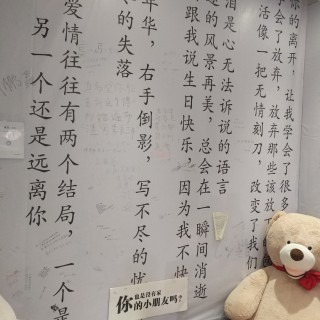 你的离开，让我学会了很多
学会了放弃，放弃那些该放下的
活像一把无情刻刀，改变了我们
泪是心无法诉说的语言
的风景再美，总会在一瞬间消逝
跟我说生日快乐，因为我不快
年华，右手倒影，写不尽的忧
尽的失落
爱情往往有两个结局，一个是
另一个还是远离你
你也是没有家
的小朋友吗?